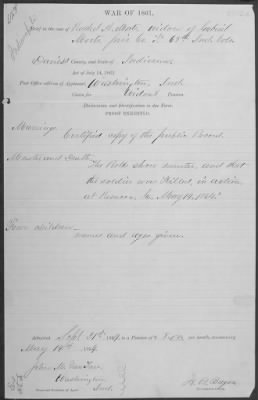 WAR OF 1861.
Brief in the case of Rachel A. Mertz, widow of Gabriel
Mertz, priv. Co. "I" 65th Ind. Vols.
Daviess County, and State of Indiana
Act of July 14, 1862.
Post Office address of Applicant, Washington, Ind.
Claim for Widow's Pension
Declaration and Identification in due Form.
PROOF EXHIBITED.
Marriage.
Certified copy of the public Record.
Muster and Death.
The Rolls show muster, and that
the soldier was killed, in action,
at Resaca, Ga. May 14, 1864.
Four children
names and ages given.
Admitted Sept. 21st 1864, to a Pension of $8.00 per month, commencing
May 14th 1864.
John M. Van Trees
Washington
Ind.